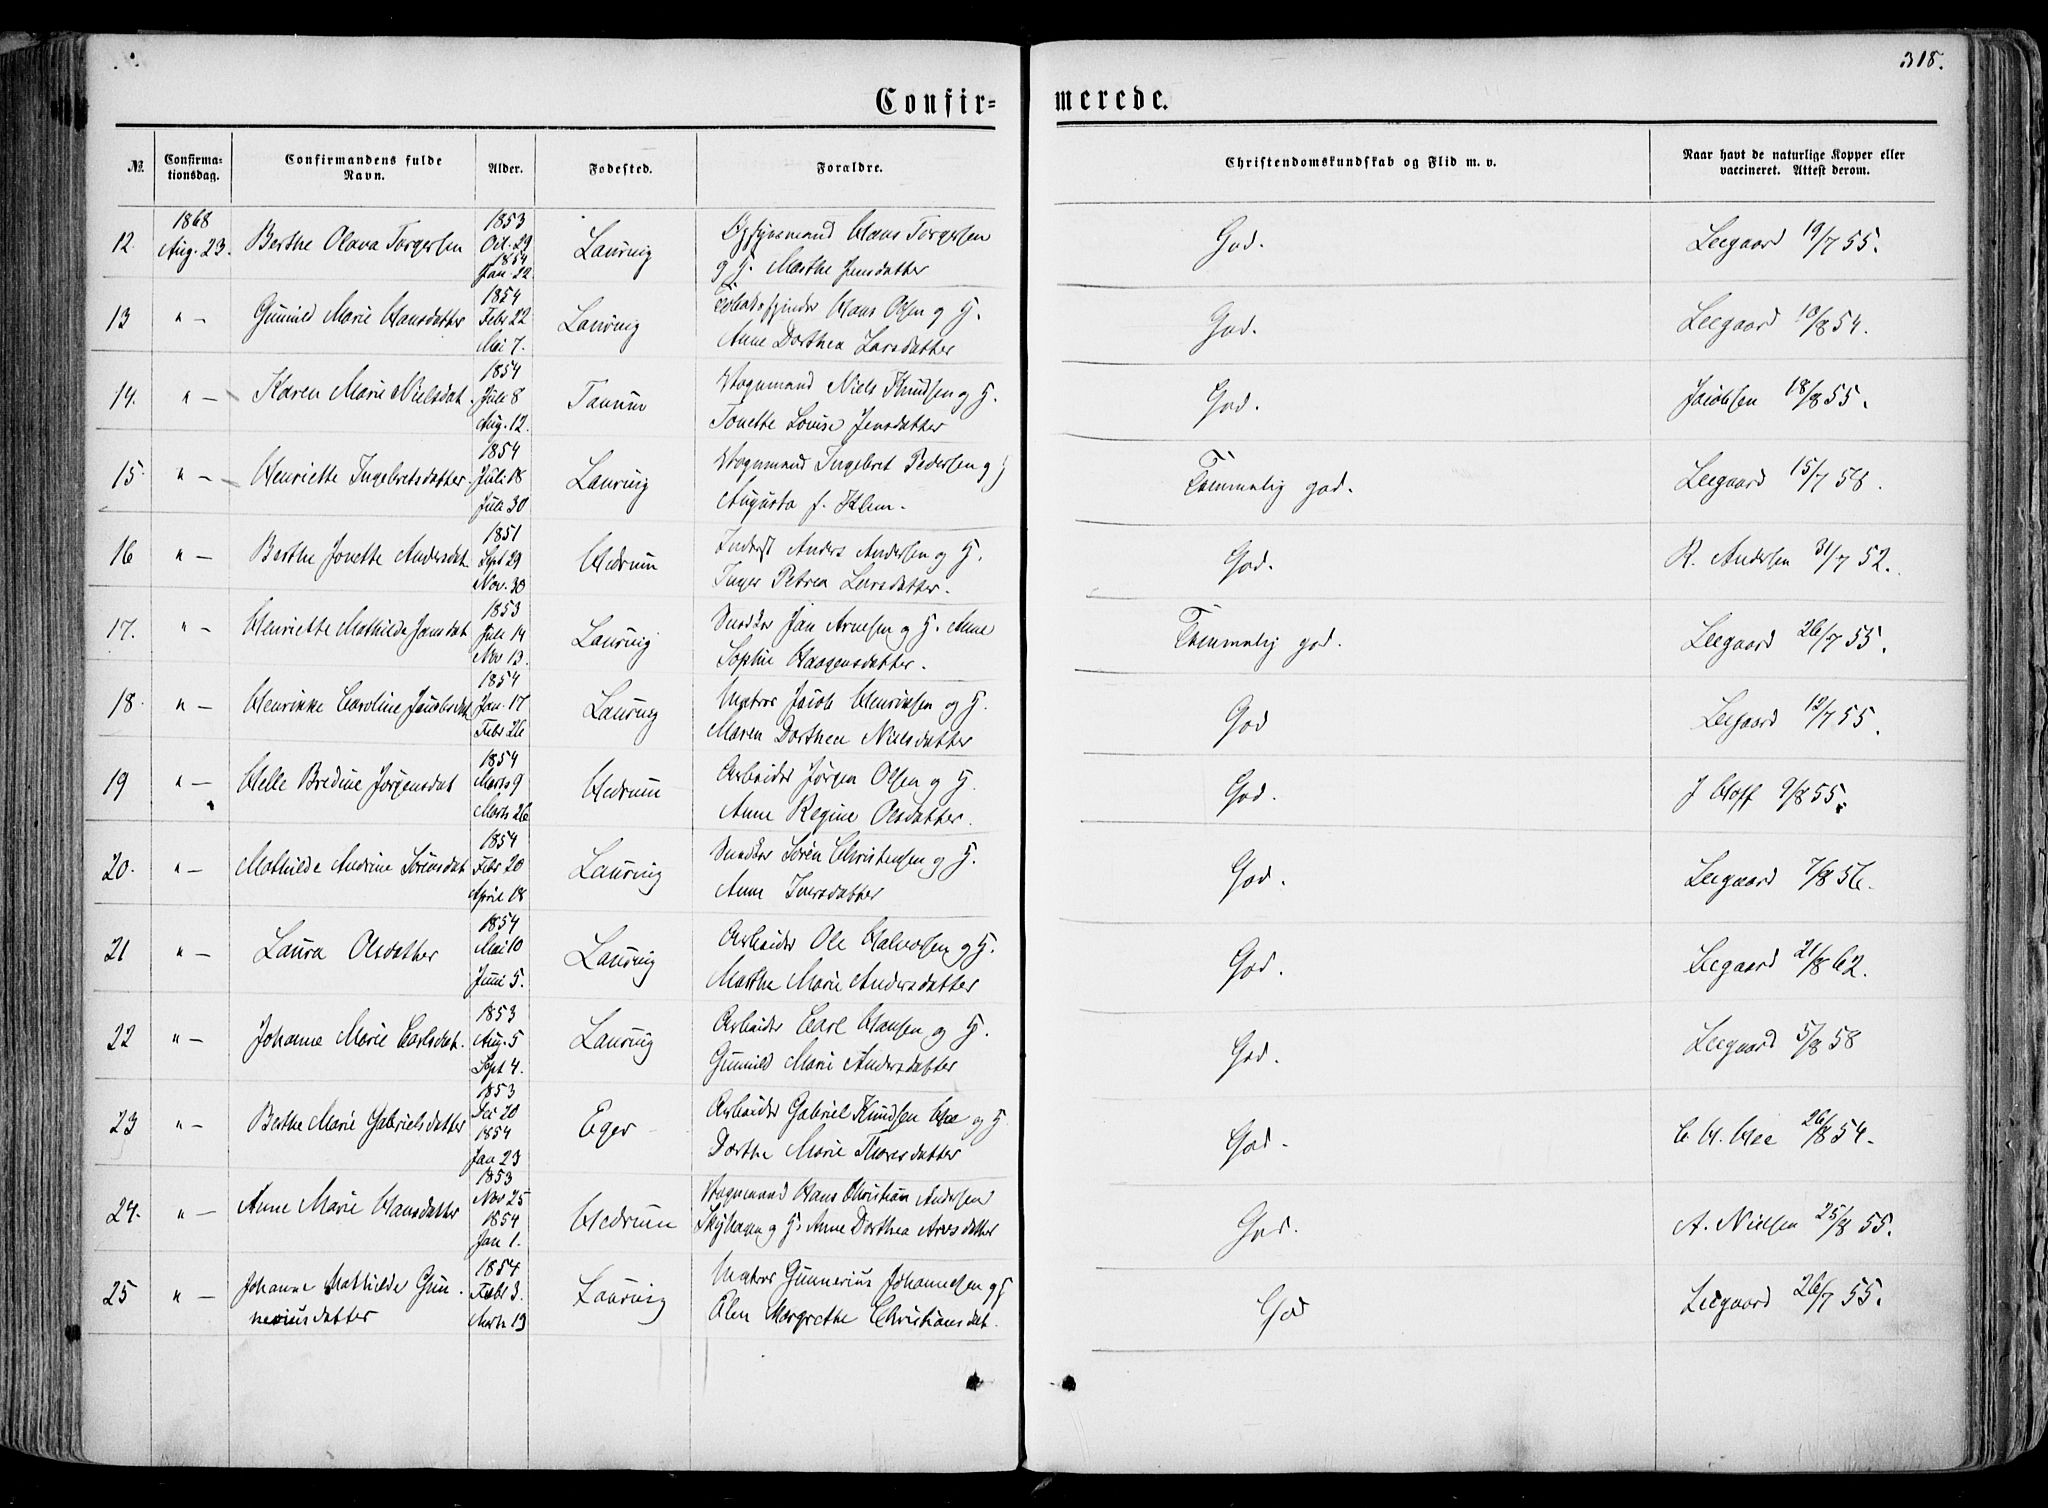 318.
Confir- merede.
№ Confirma-tionsdag. Confirmandens fulde Navn. Alder. Fødested. Forældre. Christendomskundskab og Flid m. v. Naar havt de naturlige Kopper eller vaccineret. Attest derom.
1868 1853
12. Aug. 23. Berthe Olava Torgersen Oct. 29 Laurvig Hans Torgersen God. Leegaard 19/7 55.
1854
Jan 22 og H. Marthe Jensdatter
1854
13 " — Gunnild Marie Hansdatter Febr 22 Laurvig Hans Olsen og H. God. Leegaard 18/8 54.
Mai 7. Anne Dorthea Larsdatter
1854
14. " — Karen Marie Nielsdat. Juli 8 Tanum Vognmand Niels Knudsen og H. God. Jacobsen 18/8 55.
Aug. 12. Tonette Lovise Jensdatter
1854
15. " — Henriette Ingebretsdatter. Juli 18 Laurvig Vognmand Ingebret Pedersen og H Temmelig god. Leegaard 15/7 58.
Juli 30 Augusta f. Klem.
1851
16 " — Berthe Jonette Andersdat. Sept 29 Hedrum Inderst Anders Andersen og H. God. R. Andersen 31/7 52.
Nov. 30 Inger Petrea Larsdatter.
1853
17. " — Henriette Mathilde Jansdat Juli 14 Laurvig Snedker Jan Arnesen og H. Anne Temmelig god. Leegaard 26/7 55.
Nov 13. Sophie Haagensdatter.
1854
18. " — Henrikke Caroline Jacobsdat Jan. 17 Laurvig Matros Jacob Henriksen og H. God Leegaard 12/7 55.
Febr 26 Maren Dorthea Nielsdatter
1854
19 " — Helle Bredine Jørgensdat Marts 9 Hedrum Arbeider Jørgen Olsen og H. God. J Hoff 9/8 55.
Marts 26 Anne Regine Olsdatter.
1854
20. " — Mathilde Andrine Sørensdat Febr 20 Laurvig Snedker Søren Christensen og H. God. Leegaard 7/8 56.
April 18 Anne Iversdatter
1854
21 " — Laura Olsdatter Mai 10 Laurvig Arbeider Ole Halvorsen og H. God. Leegaard 21/8 62.
Juni 5. Marthe Marie Andersdatter
1853
22 " — Johanne Marie Carlsdat. Aug. 5 Laurvig Arbeider Carl Hansen og H. God. Leegaard 5/8 58
Sept 4. Gunnild Marie Andersdatter
1853
23 " — Berthe Marie Gabrielsdatter Dec 20 Eger Arbeider Gabriel Knudsen Hoe og H God. C H. Hee 26/8 54.
1854
Jan 23 Dorthe Marie Thoresdatter
1853
24. " — Anne Marie Hansdatter Nov 25 Hedrum Vognmand Hans Christian Andersen God. A. Nielsen 25/8 55.
1854
Jan 1. og H. Anne Dorthea Arnsdatter
1854
25 " — Johanne Mathilde Gun- Febr 3. Laurvig Matros Gunnerius Johannesen og H God Leegaard 26/7 55.
neriusdatter Marts 19 Olen Margrethe Christiansdat.